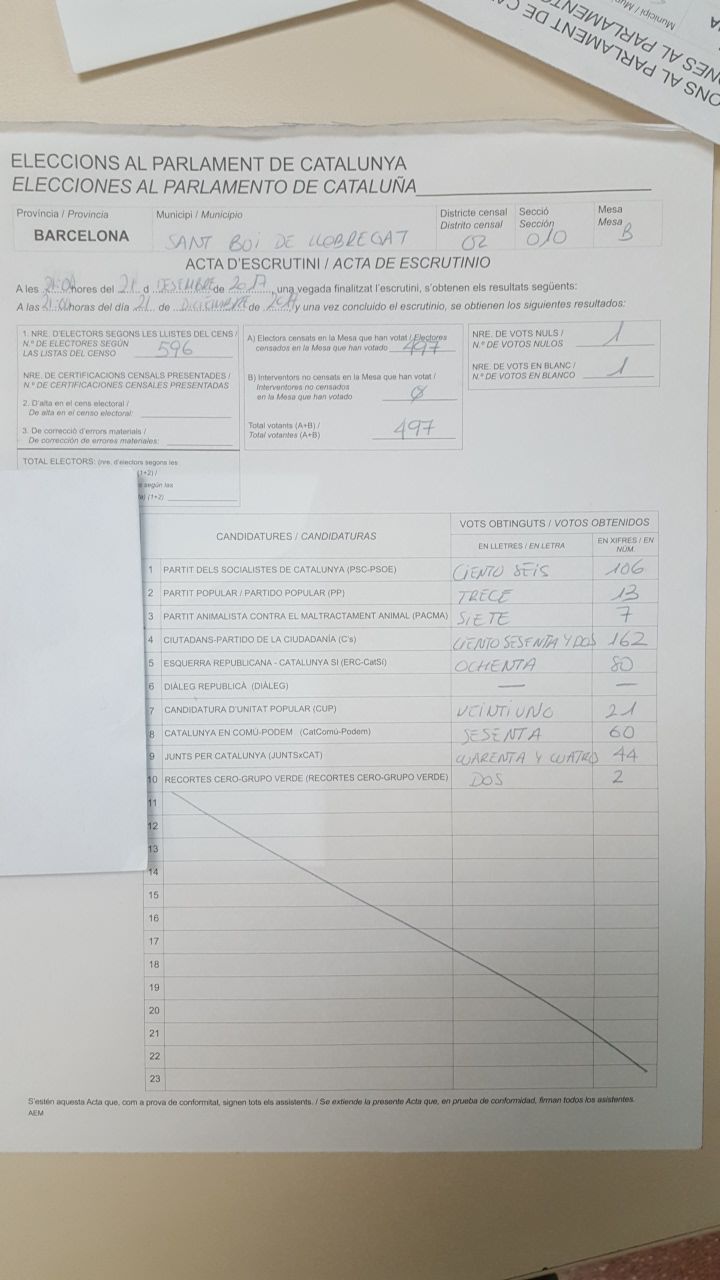 ONS AL PARLAMENT DE CA
NES AL PARLAMENT
Municipi / Mu
ELECCIONS AL PARLAMENT DE CATALUNYA
ELECCIONES AL PARLAMENTO DE CATALUÑA
Província / Provincia
BARCELONA
Municipi / Municipio
SANT BOI DE LLOBREGAT
Districte censal
Distrito censal
02
Secció
Sección
010
Mesa
Mesa
B
ACTA D'ESCRUTINI / ACTA DE ESCRUTINIO
A les 21:00 hores del 21 d DESEMBRE de 2017, una vegada finalitzat l'escrutini, s'obtenen els resultats següents:
A las 21:00 horas del día 21 de DICIEMBRE de 2017 y una vez concluido el escrutinio, se obtienen los siguientes resultados:
1. NRE. D'ELECTORS SEGONS LES LLISTES DEL CENS /
N.º DE ELECTORES SEGÚN
LAS LISTAS DEL CENSO 596
NRE. DE CERTIFICACIONS CENSALS PRESENTADES /
N.º DE CERTIFICACIONES CENSALES PRESENTADAS
2. D'alta en el cens electoral /
De alta en el censo electoral:
3. De correcció d'errors materials /
De corrección de errores materiales:
TOTAL ELECTORS: (nre. d'electors segons les
(1+2) /
según las
(1+2)
A) Electors censats en la Mesa que han votat / Electores
censados en la Mesa que han votado 497
B) Interventors no censats en la Mesa que han votat /
Interventores no censados
en la Mesa que han votado 0
Total votants (A+B) /
Total votantes (A+B) 497
NRE. DE VOTS NULS /
N.º DE VOTOS NULOS 1
NRE. DE VOTS EN BLANC /
N.º DE VOTOS EN BLANCO 1
CANDIDATURES / CANDIDATURAS
VOTS OBTINGUTS / VOTOS OBTENIDOS
EN LLETRES / EN LETRA
EN XIFRES / EN NÚM.
1 PARTIT DELS SOCIALISTES DE CATALUNYA (PSC-PSOE) CIENTO SEIS 106
2 PARTIT POPULAR / PARTIDO POPULAR (PP) TRECE 13
3 PARTIT ANIMALISTA CONTRA EL MALTRACTAMENT ANIMAL (PACMA) SIETE 7
4 CIUTADANS-PARTIDO DE LA CIUDADANÍA (C's) CIENTO SESENTA Y DOS 162
5 ESQUERRA REPUBLICANA - CATALUNYA SÍ (ERC-CatSí) OCHENTA 80
6 DIÀLEG REPUBLICÀ (DIÀLEG) — —
7 CANDIDATURA D'UNITAT POPULAR (CUP) VEINTIUNO 21
8 CATALUNYA EN COMÚ-PODEM (CatComú-Podem) SESENTA 60
9 JUNTS PER CATALUNYA (JUNTSxCAT) CUARENTA Y CUATRO 44
10 RECORTES CERO-GRUPO VERDE (RECORTES CERO-GRUPO VERDE) DOS 2
11
12
13
14
15
16
17
18
19
20
21
22
23
S'estén aquesta Acta que, com a prova de conformitat, signen tots els assistents. / Se extiende la presente Acta que, en prueba de conformidad, firman todos los asistentes.
AEM